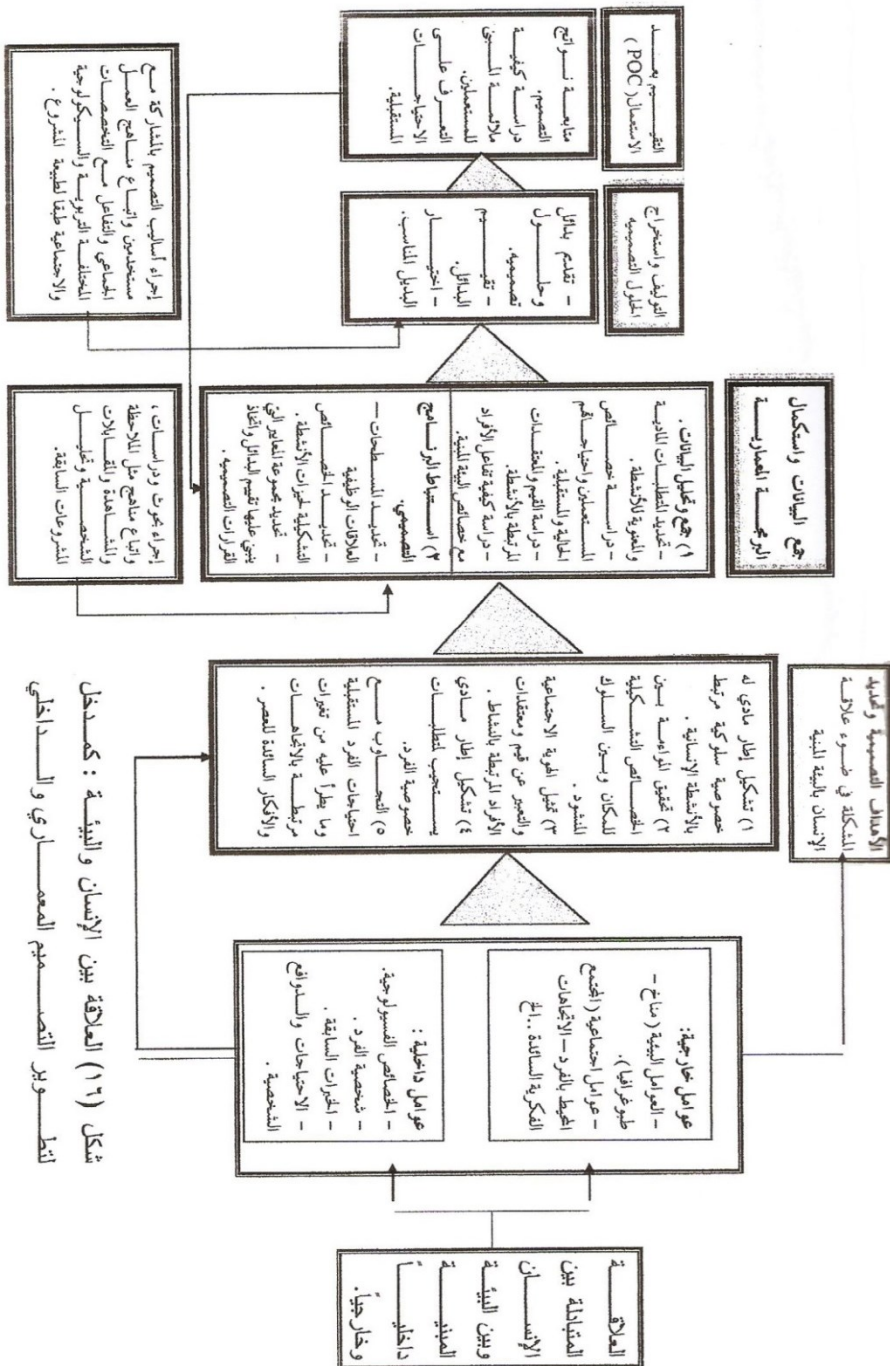 العلاقــــة
المتبادلة بين
الإنســـــان
وبين البيئة
المبنيـــــة
داخليـــــاً
وخارجياً.
عوامل خارجية:
- العوامل البيئية (مناخ –
طبوغرافيا).
- عوامل اجتماعية (المجتمع
المحيط بالفرد – الاتجاهات
الفكرية السائدة ..الخ
عوامل داخلية :
- الخصائص الفسيولوجية.
- شخصية الفرد .
- الخبرات السابقة .
- الاحتياجات والدوافع
الشخصية .
الأهداف التصميمية وتحديد
المشكلة في ضوء علاقة
الإنسان بالبيئة المبنية
١) تشكيل إطار مادي له
خصوصية سلوكية مرتبط
بالأنشطة الإنسانية .
٢) تحقيق المواءمة بين
الخصائص التشكيلية
للمكان وبين السلوك
المنشود .
٣) تمثيل الهوية الاجتماعية
والتعبير عن قيم ومعتقدات
الأفراد المرتبطة بالنشاط .
٤) تشكيل إطار مادي
يستجيب لمتطلبات
خصوصية الفرد.
٥) التجاوب مع
احتياجات الفرد المستقبلية
وما يطرأ عليه من تغيرات
مرتبطة بالاتجاهات
والأفكار السائدة للعصر .
جمع البيانات واستكمال
البرمجة المعمارية
١) جمع وتحليل البيانات .
- تحديد المتطلبات المادية
والمعنوية للأنشطة .
- دراسة خصائص
المستعملين واحتياجاتهم
الحالية والمستقبلية .
- دراسة القيم والمعتقدات
المرتبطة بالأنشطة.
- دراسة كيفية تفاعل الأفراد
مع خصائص البيئة المبنية.
٢) استنباط البرنامج
التصميمي.
- تحديد المسطحات –
العلاقات الوظيفية
- تحديد الخصائص
التشكيلية لحيزات الأنشطة .
- تحديد مجموعة المعايير التي
ينبني عليها تقييم البدائل واتخاذ
القرارات التصميميه.
إجراء بحوث ودراسات ،
واتباع مناهج مثل الملاحظة
والمشاهدة والمقابلات
الشخصية وتحليل
المشروعات السابقة.
التوليف واستخراج
الحلول التصميميه
- تقدم بدائل
وحلـــول
تصميميه.
- تقيـــيم
البدائل.
- اختيـــار
البديل المناسب.
إجراء أساليب التصميم بالمشاركة مع
مستخدمين واتباع مناهج العمل
الجماعي والتفاعل مع التخصصات
المختلفة التربوية والسيكولوجية
والاجتماعية طبقا لطبيعة المشروع .
التقييـــم بعـــد
الاستعمال( POC )
متابعة نواتج
التصميم.
دراسة كيفية
ملائمة المبنى
للمستعملين.
التعرف علـــى
الاحتياجـــات
المستقبلية.
شكل (١٦) العلاقة بين الإنسان والبيئة : كمدخل
لتطـــوير التصـــميم المعمـــاري والـــداخلي